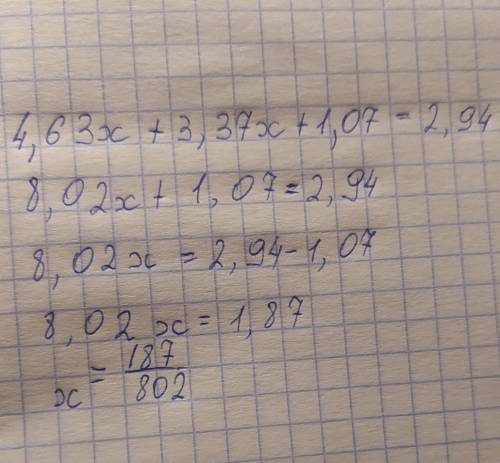 4,63x + 3,37x + 1,07 = 2,94
8,02x + 1,07 = 2,94
8,02x = 2,94 - 1,07
8,02x = 1,87
x = 187/802